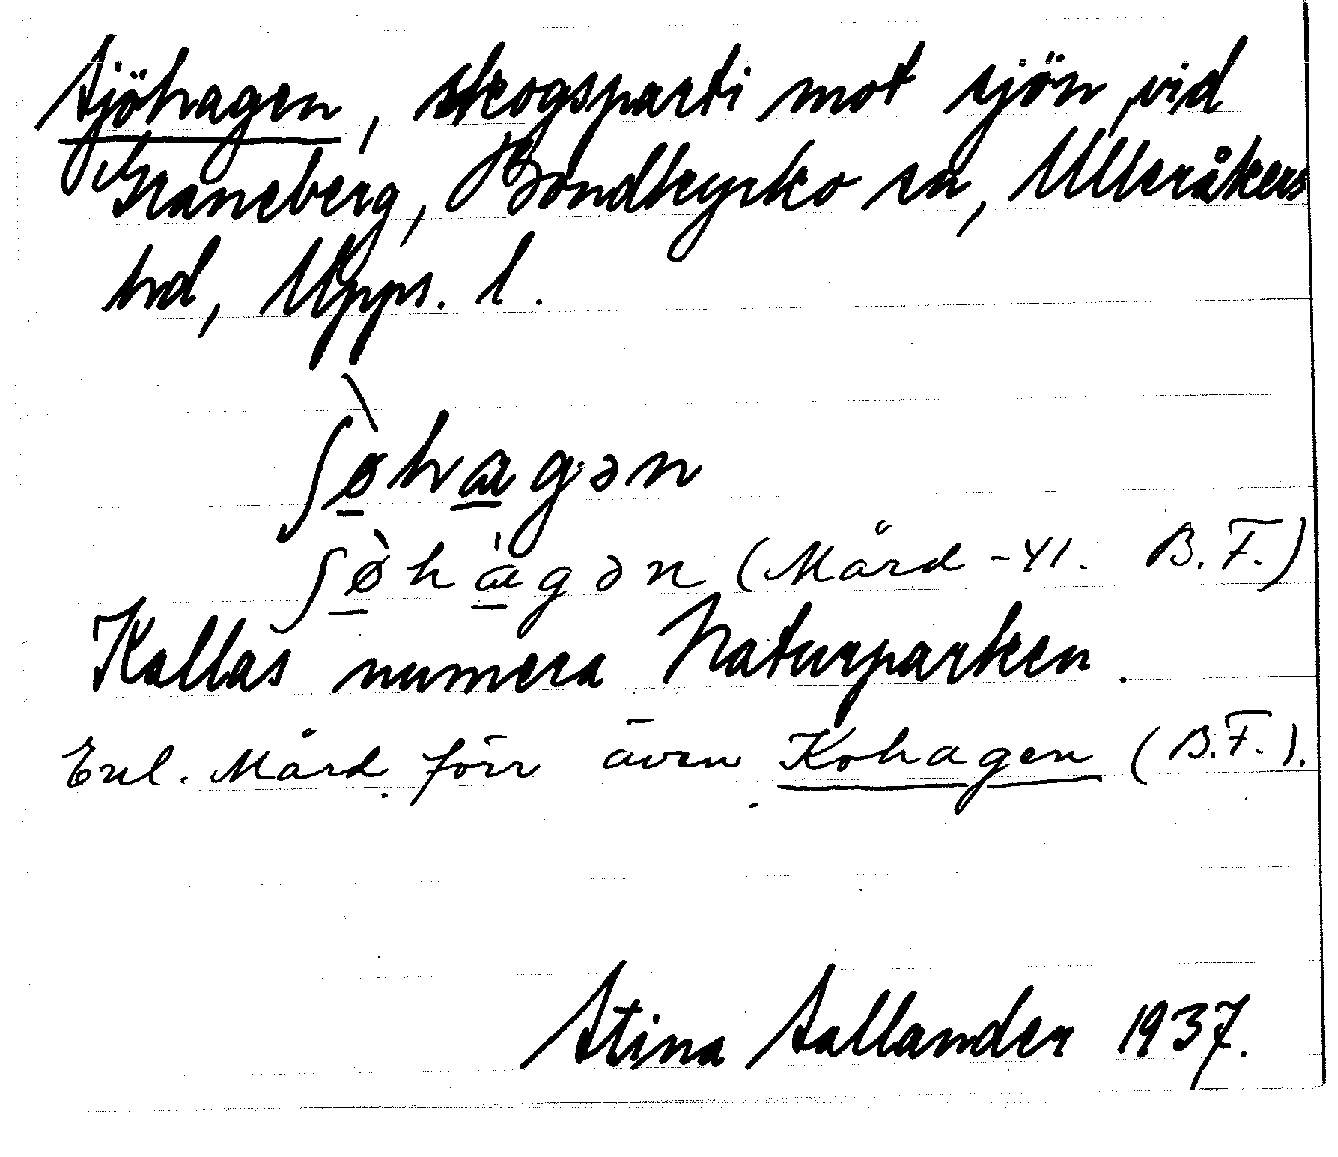 Sjöhagen, skogsparti mot sjön vid
Graneberg, Bondkyrko sn, Ulleråkers
hd, Upps. l.
ʃø̀hagən
ʃø̀hàgən (Mård -41. B.F.)
Kallas numera Naturparken.
Enl. Mård förr även Kohagen (B.F.).
Stina Sallander 1937.